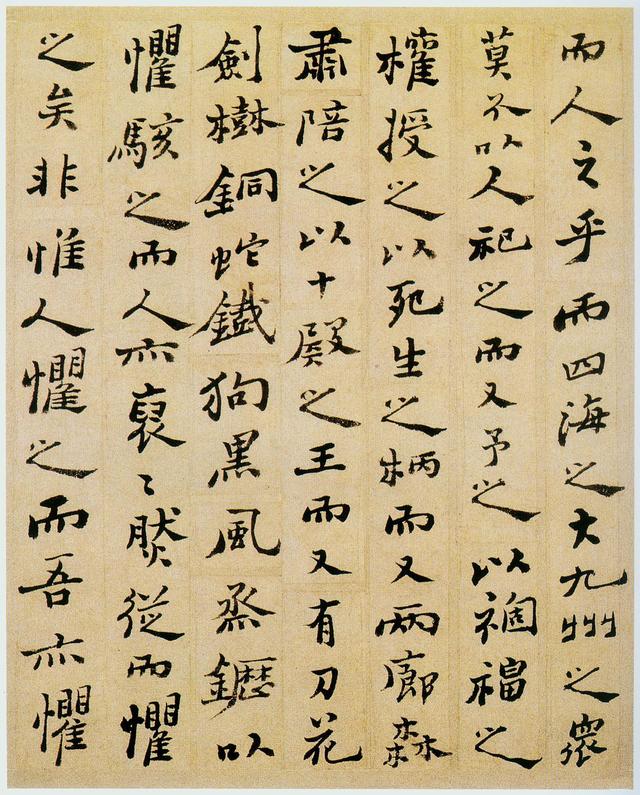 而人之乎而四海之大九州之衆
莫不以人祀之而又予之以禍福之
權授之以死生之柄而又兩廊森
肅陪之以十殿之王而又有刀花
劍樹銅蛇鐵狗黑風烝䥶以
懼駭之而人亦裒々然從而懼
之矣非惟人懼之而吾亦懼